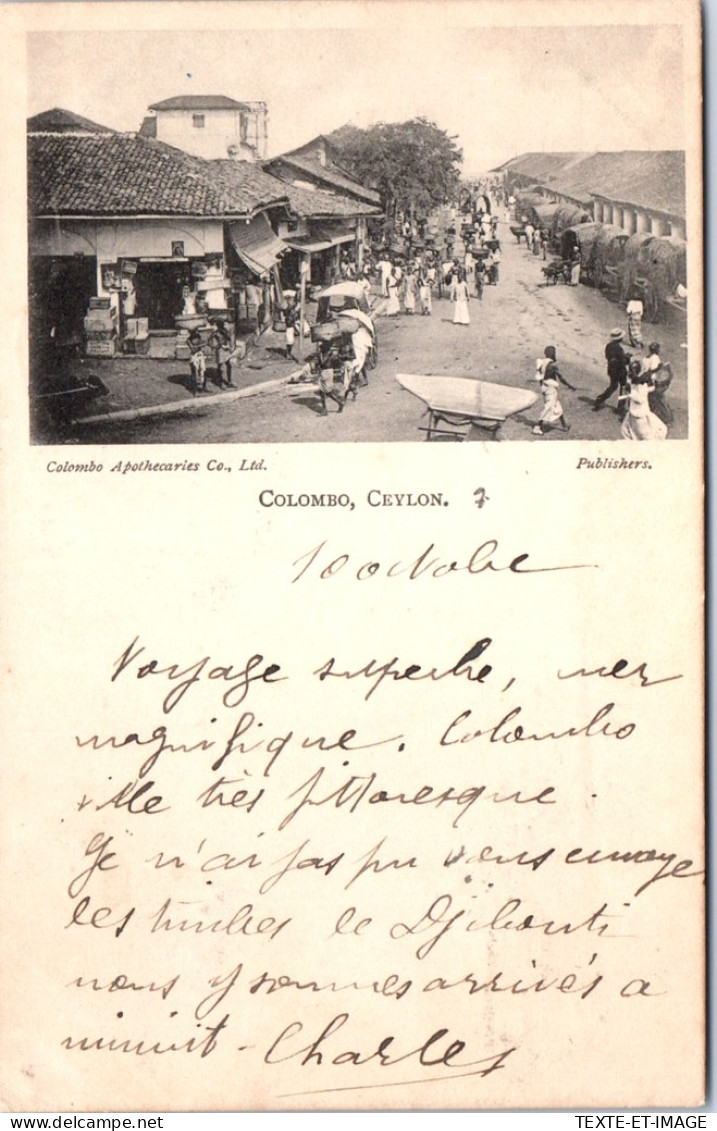 Colombo Apothecaries Co., Ltd. Publishers.
COLOMBO, CEYLON.
10 octobre
Voyage superbe, mer
magnifique. Colombo
ville très pittoresque.
Je n'ai pas pu vous envoyer
les timbres de Djibouti
nous y sommes arrivés a
minuit - Charles
TEXTE-ET-IMAGE